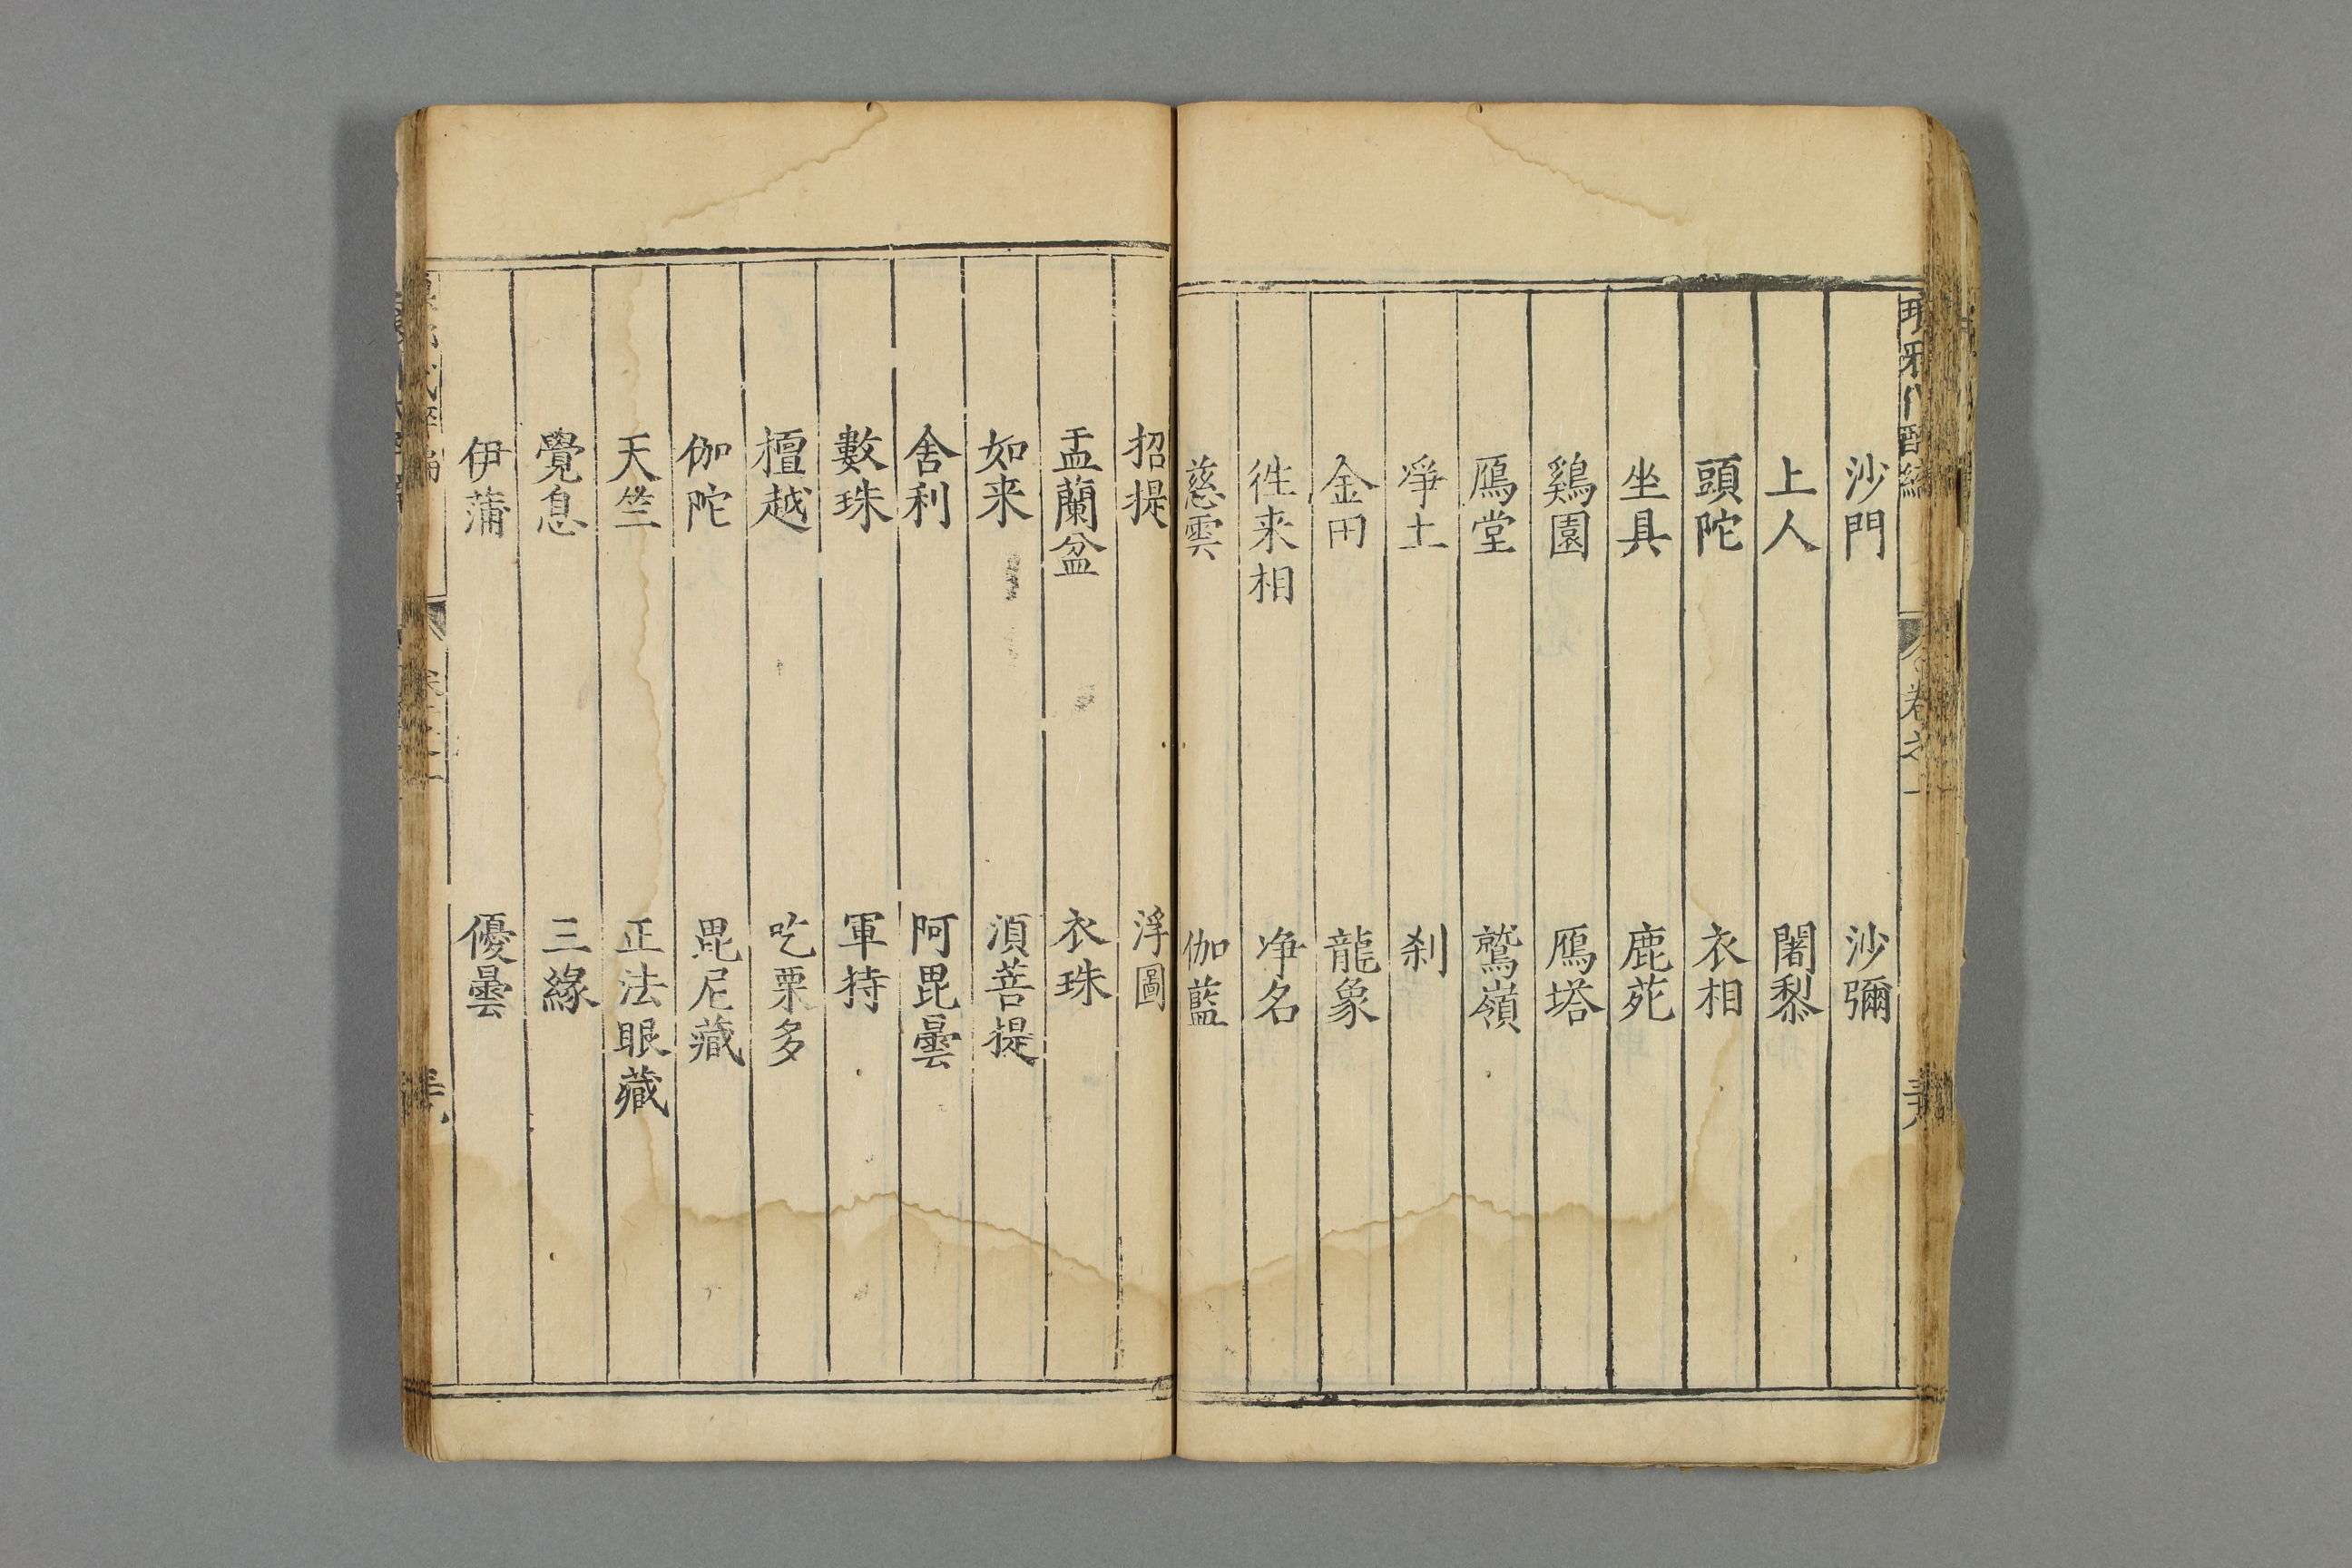 沙門 沙彌
上人 闍黎
頭陀 衣相
坐具 鹿苑
鷄園 鴈塔
鴈堂 鷲嶺
淨土 刹
金田 龍象
徃来相 净名
慈雲 伽藍
招提 浮圖
盂蘭盆 衣珠
如来 湏菩提
舍利 阿毘曇
數珠 軍持
檀越 吃栗多
伽陀 毘尼藏
天竺 正法眼藏
覺息 三緣
伊蒲 優曇
卷之一